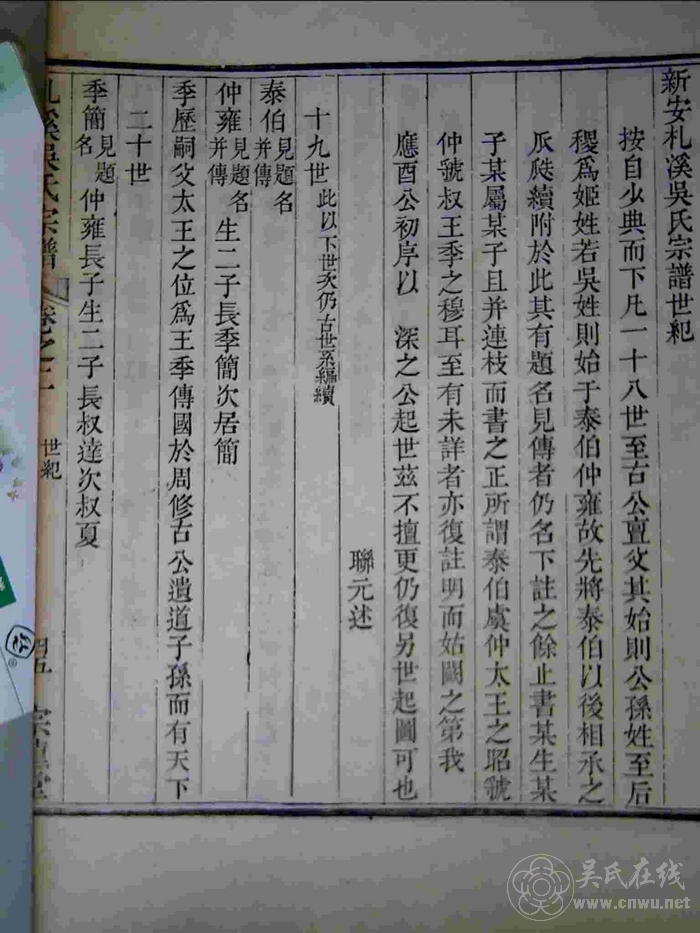 新安札溪吳氏宗譜世紀
按自少典而下凡一十八世至古公亶父其始則公孫姓至后
稷爲姬姓若吳姓則始于泰伯仲雍故先將泰伯以後相承之
瓜瓞續附於此其有題名見傳者仍名下註之餘止書某生某
子某屬某子且并連枝而書之正所謂泰伯虞仲太王之昭號
仲號叔王季之穆耳至有未詳者亦復註明而姑闕之第我
應酉公初序以 深之公起世茲不擅更仍復另世起圖可也
聯元述
十九世 此以下世次仍古世系編續
泰伯 見題名并傳
仲雍 見題名并傳 生二子長季簡次居簡
季歷嗣父太王之位爲王季傳國於周修古公遺道子孫而有天下
二十世
季簡 見題名 仲雍長子生二子長叔達次叔夏
札溪吳氏宗譜 卷之二 世紀
吳氏在线
www.cnwu.net